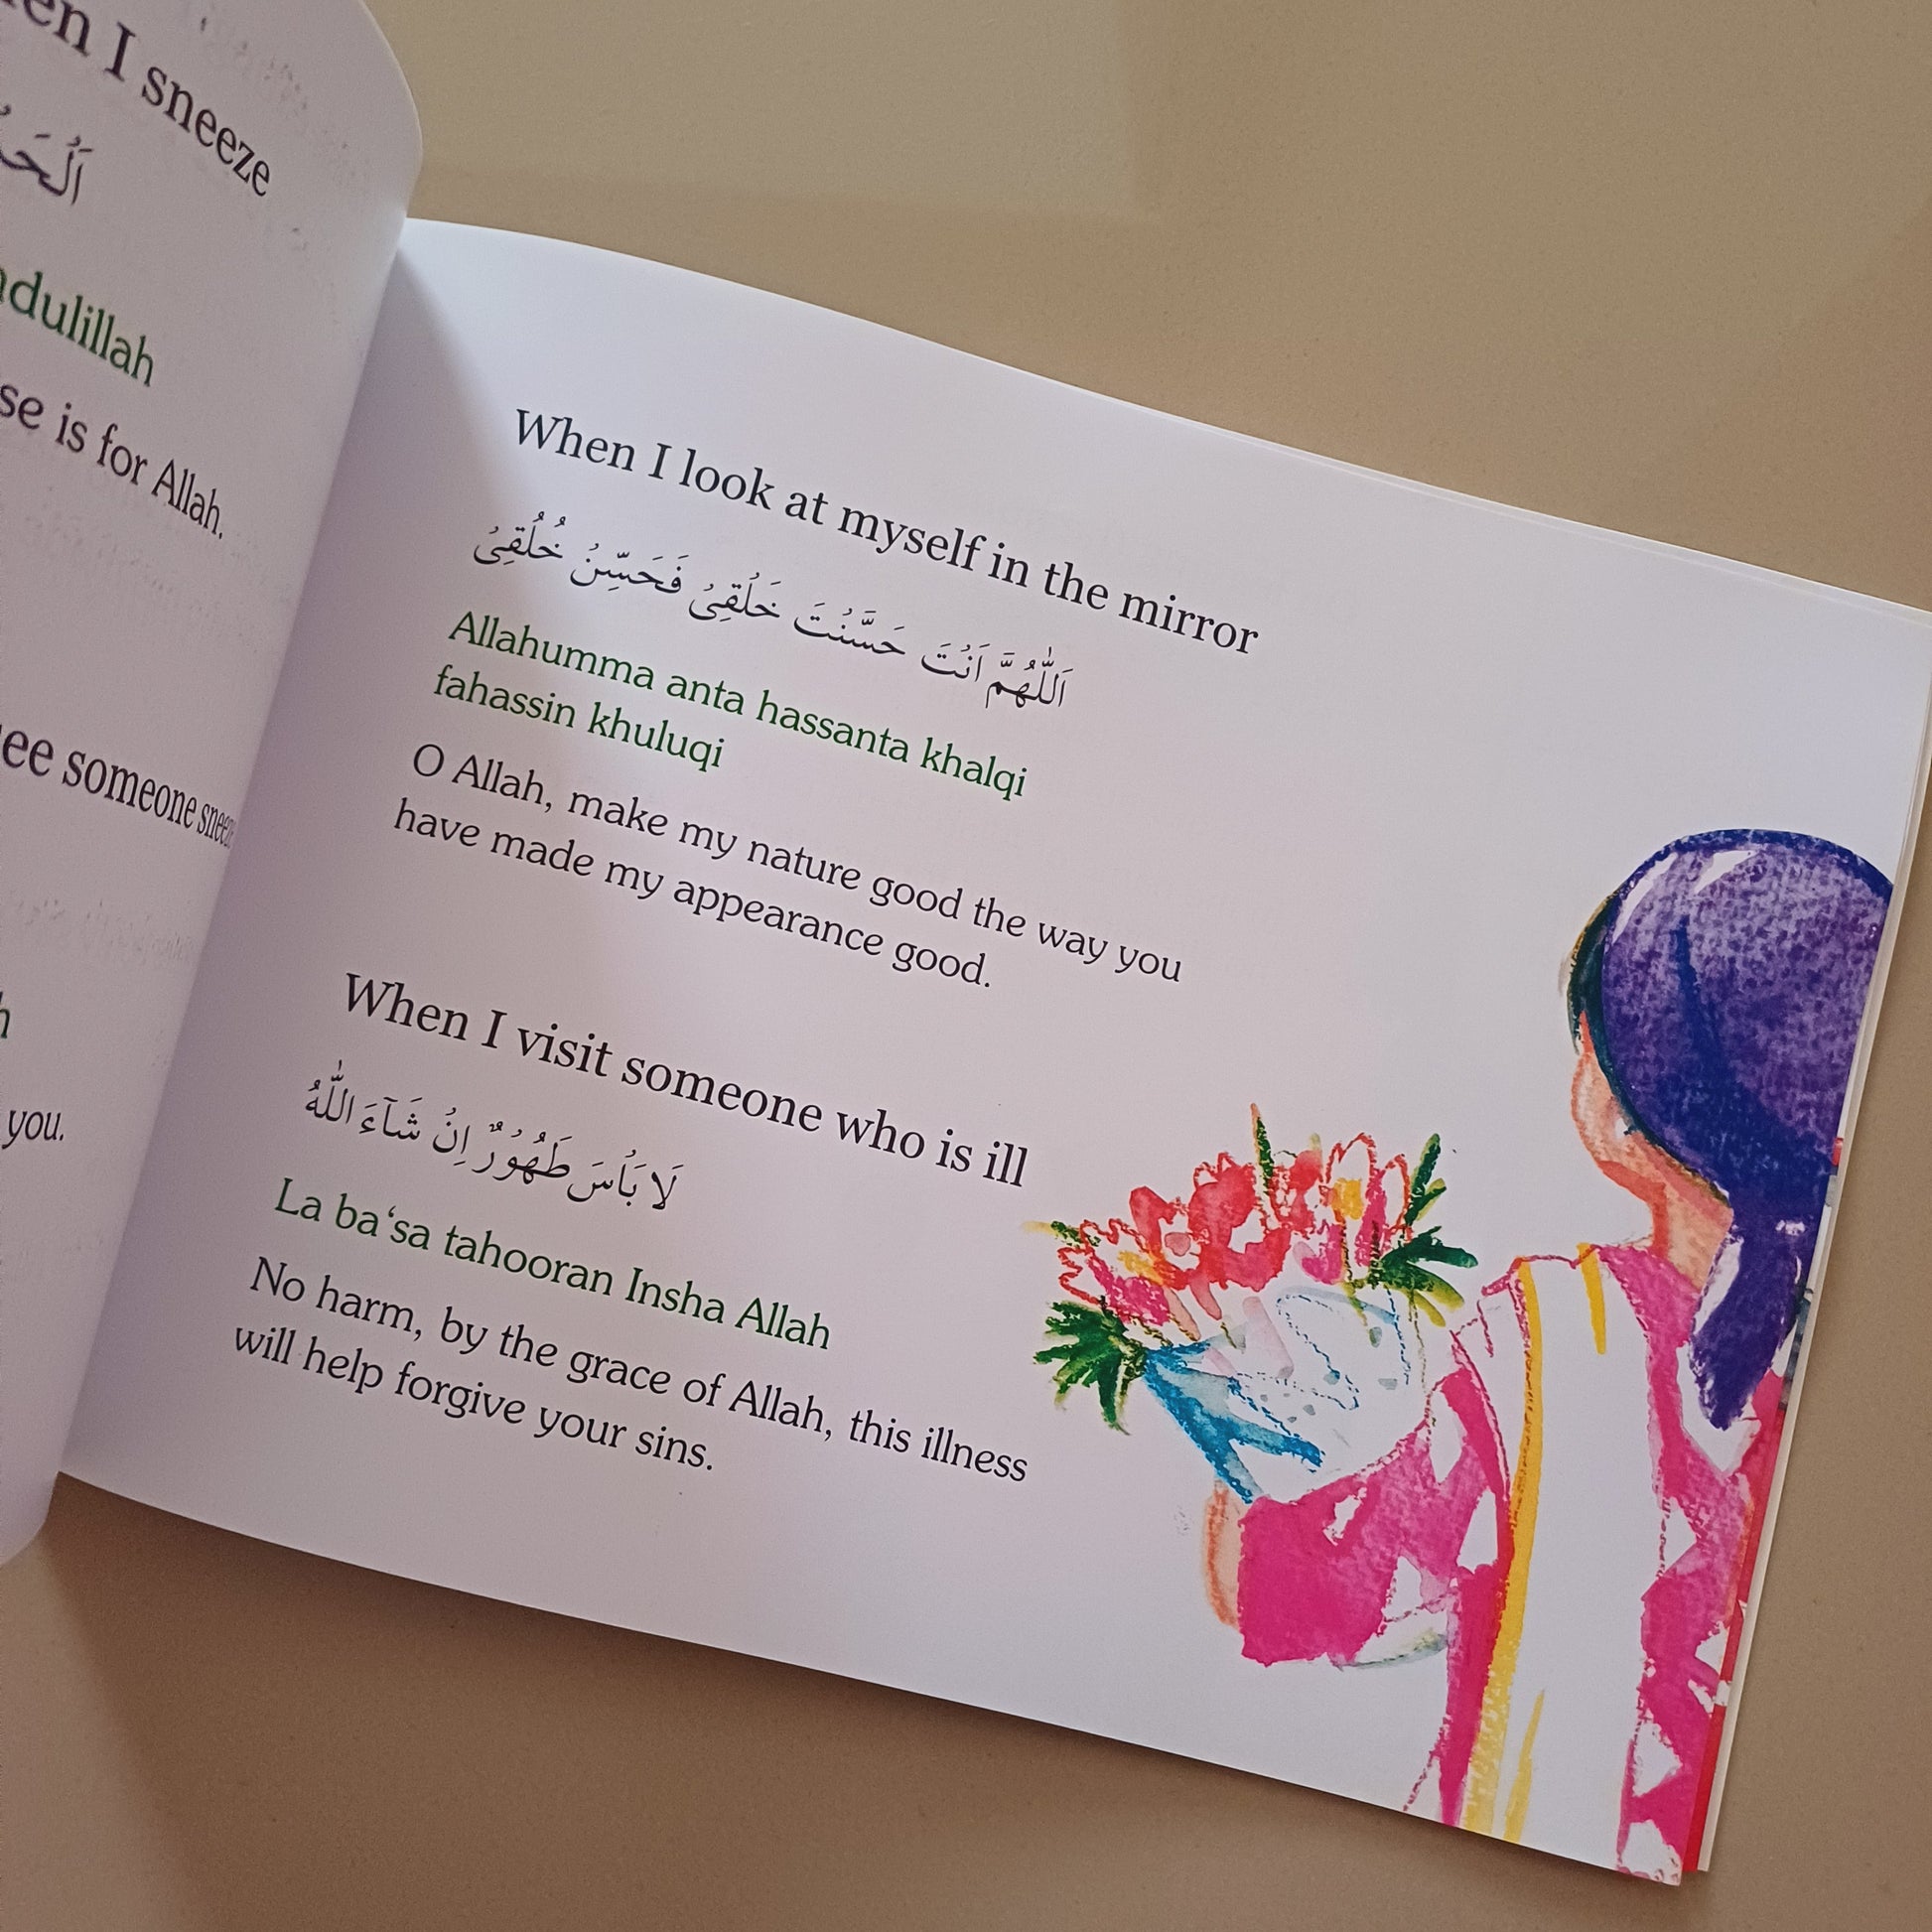 I sneeze
is for Allah.
someone
you.
When I look at myself in the mirror
اَللّٰهُمَّ اَنْتَ حَسَّنْتَ خَلْقِیْ فَحَسِّنْ خُلُقِیْ
Allahumma anta hassanta khalqi
fahassin khuluqi
O Allah, make my nature good the way you
have made my appearance good.
When I visit someone who is ill
لَا بَاْسَ طَهُوْرٌ اِنْ شَآءَ اللّٰهُ
La ba‘sa tahooran Insha Allah
No harm, by the grace of Allah, this illness
will help forgive your sins.